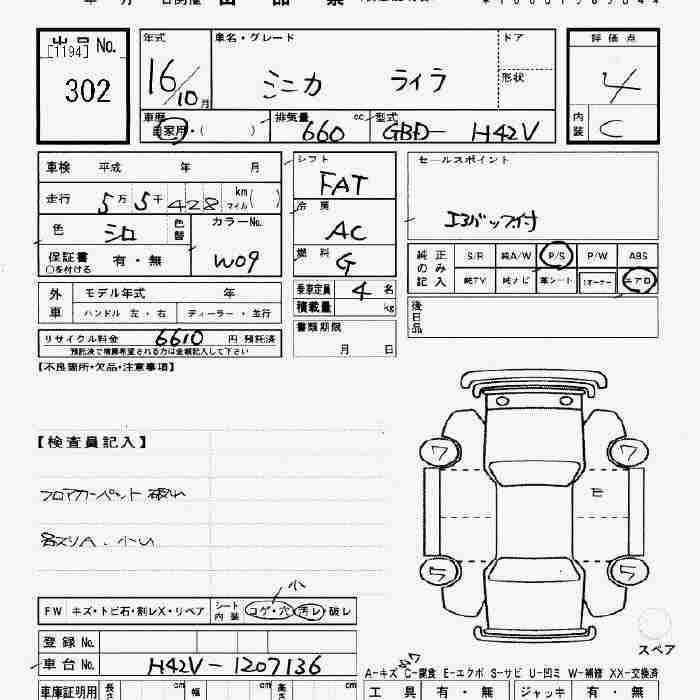 出品 No.
[1194]
302
年式
16/10月
車名・グレード
ミニカ ライラ
ドア
形状
評価点
4
内装
C
車歴
自家用・( )
排気量
660 cc
型式
GBD- H42V
車検 平成 年 月
走行 5万 5千 428 km マイル( )
色
シロ
色替
カラーNo.
W09
保証書
○を付ける
有・無
シフト
FAT
冷房
AC
燃料
G
セールスポイント
エコバック付
純正のみ記入
S/R 純A/W P/S P/W ABS
純TV 純ナビ 革シート 1オーナー エアロ
外車
モデル年式 年
ハンドル 左・右 ディーラー・並行
乗車定員 4 名
積載量 kg
後日品
リサイクル料金 6610 円 預託済
預託済で積算希望される方は金額記入して下さい
書類期限
月 日
【不良箇所・欠品・注意事項】
【検査員記入】
フロアカーペット 破れ
各スリA、小U
ワ ワ
E
5 5
小
FW キズ・トビ石・割レX・リペア シート内装 コゲ・穴 汚レ 破レ
スペア
登録 No.
車台 No. H42V-1207136
A-キズ C-腐食 E-エクボ S-サビ U-凹ミ W-補修 XX-交換済
車庫証明用 長さ cm 幅 cm 高さ cm
工具 有・無 ジャッキ 有・無